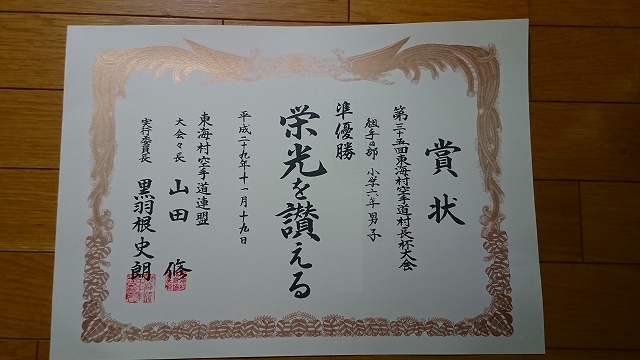 賞状
第三十五回東海村空手道村長杯大会
組手の部 小学六年 男子
準優勝
栄光を讃える
平成二十九年十一月十九日
東海村空手道連盟
大会々長 山田 修
実行委員長 黒羽根史朗